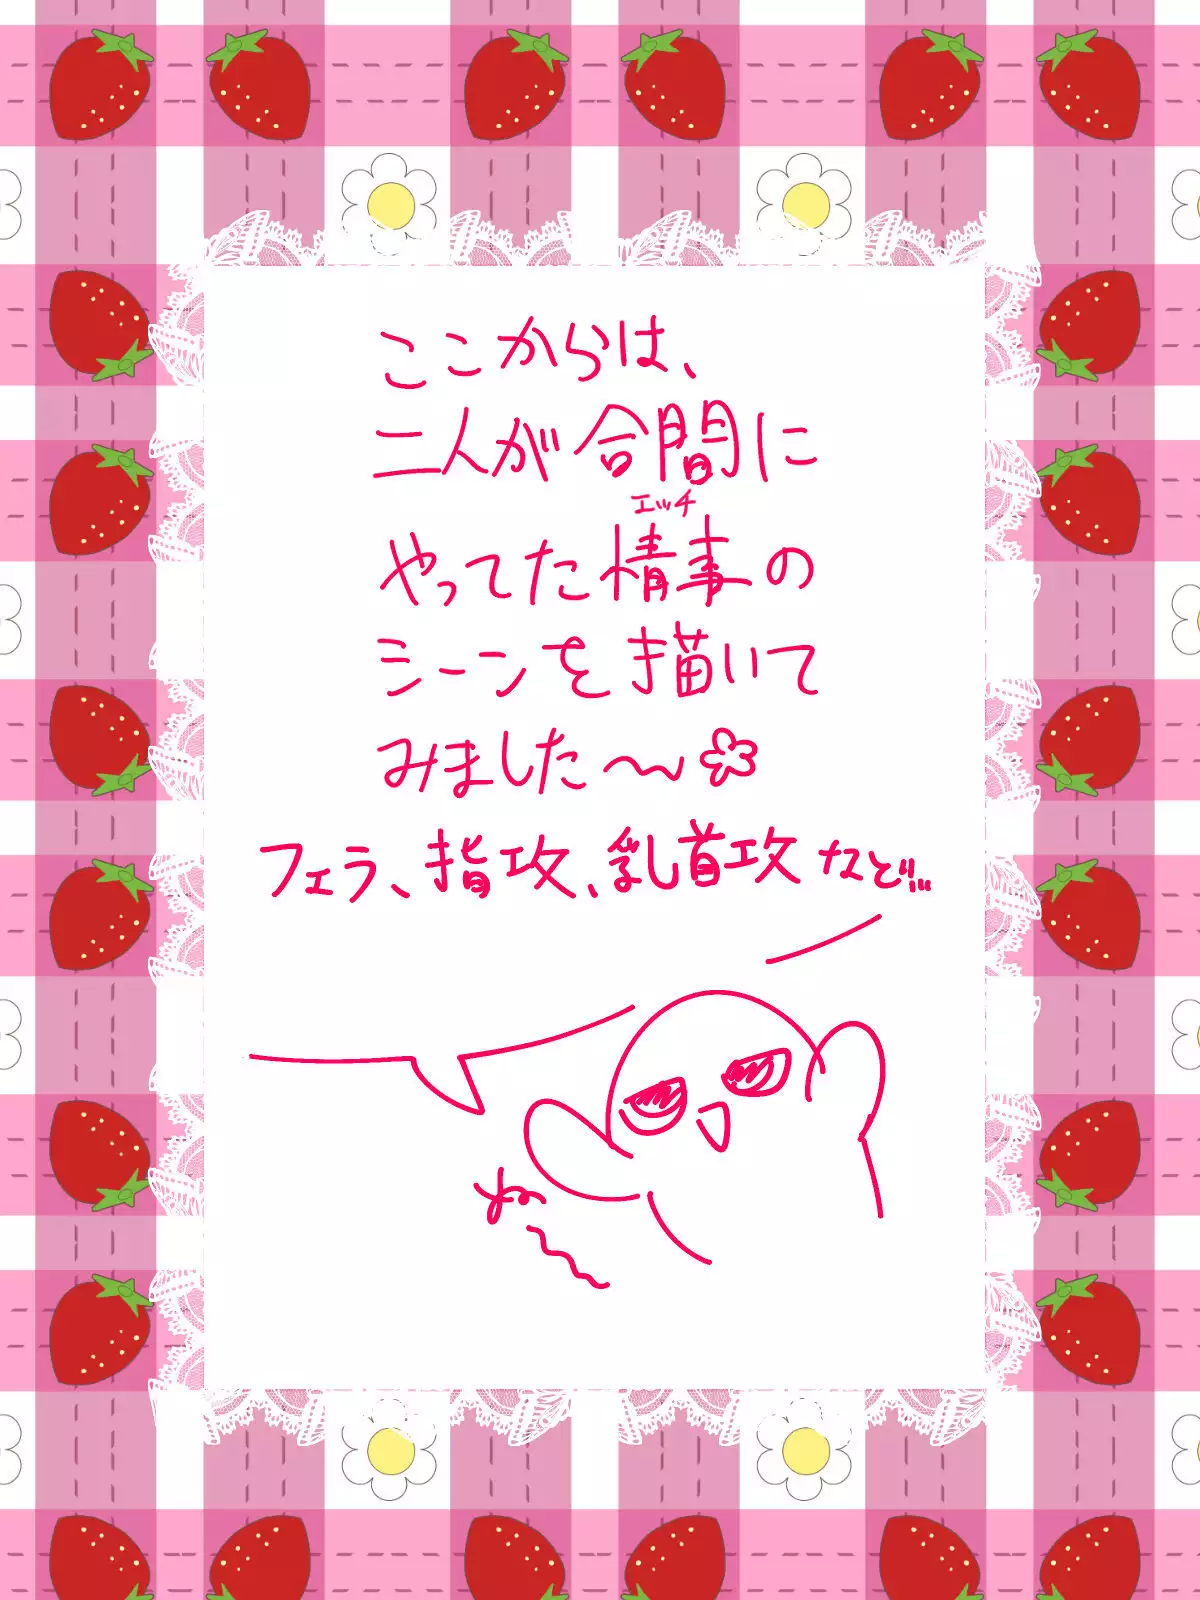 ここからは、
二人が合間に
エッチ
やってた情事の
シーンを描いて
みました〜
フェラ、指攻、乳首攻など…
ね〜